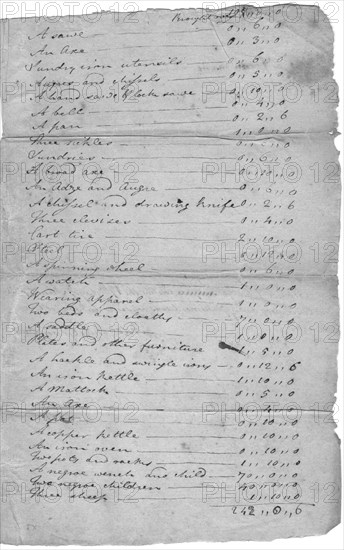 Brought
A sawe 0 " 6 " 0
An Axe 0 " 3 " 0
Sundry iron utensils 0 " 6 " 0
Augres and chissels 0 " 5 " 0
A hand sawe & lock sawe 0 " 10 "
A bell 0 " 4 " 0
A pan 0 " 2 " 6
Three sickles
Sundries
A broad axe
An Adge and Augre
A chissel and drawing knife 0 " 2 " 6
Three clevises 0 " 4 " 0
Cart tire 2 " 10 " 0
Steel 0 " 10 " 0
A spinning wheel 0 " 6 " 0
A watch
Wearing apparel
Two beds and cloaths 7 " 0 " 0
A saddle 1 " 0 " 0
Plates and other furniture 1 " 5 " 0
A hackle and swingle irons 0 " 12 " 6
An iron kettle 1 " 10 " 0
A Mattock 0 " 5 " 0
An Axe 0 " 4 " 0
A 0 " 10 " 0
A copper kettle 0 " 10 " 0
An iron oven 0 " 10 " 0
Two pots and racks 1 " 10 " 0
A negroe wench and child 70 " 0 " 0
Two negroe children 40 " 0 " 0
Three sheep 0 " 10 " 0
242 " 0 " 6
PHOTO12